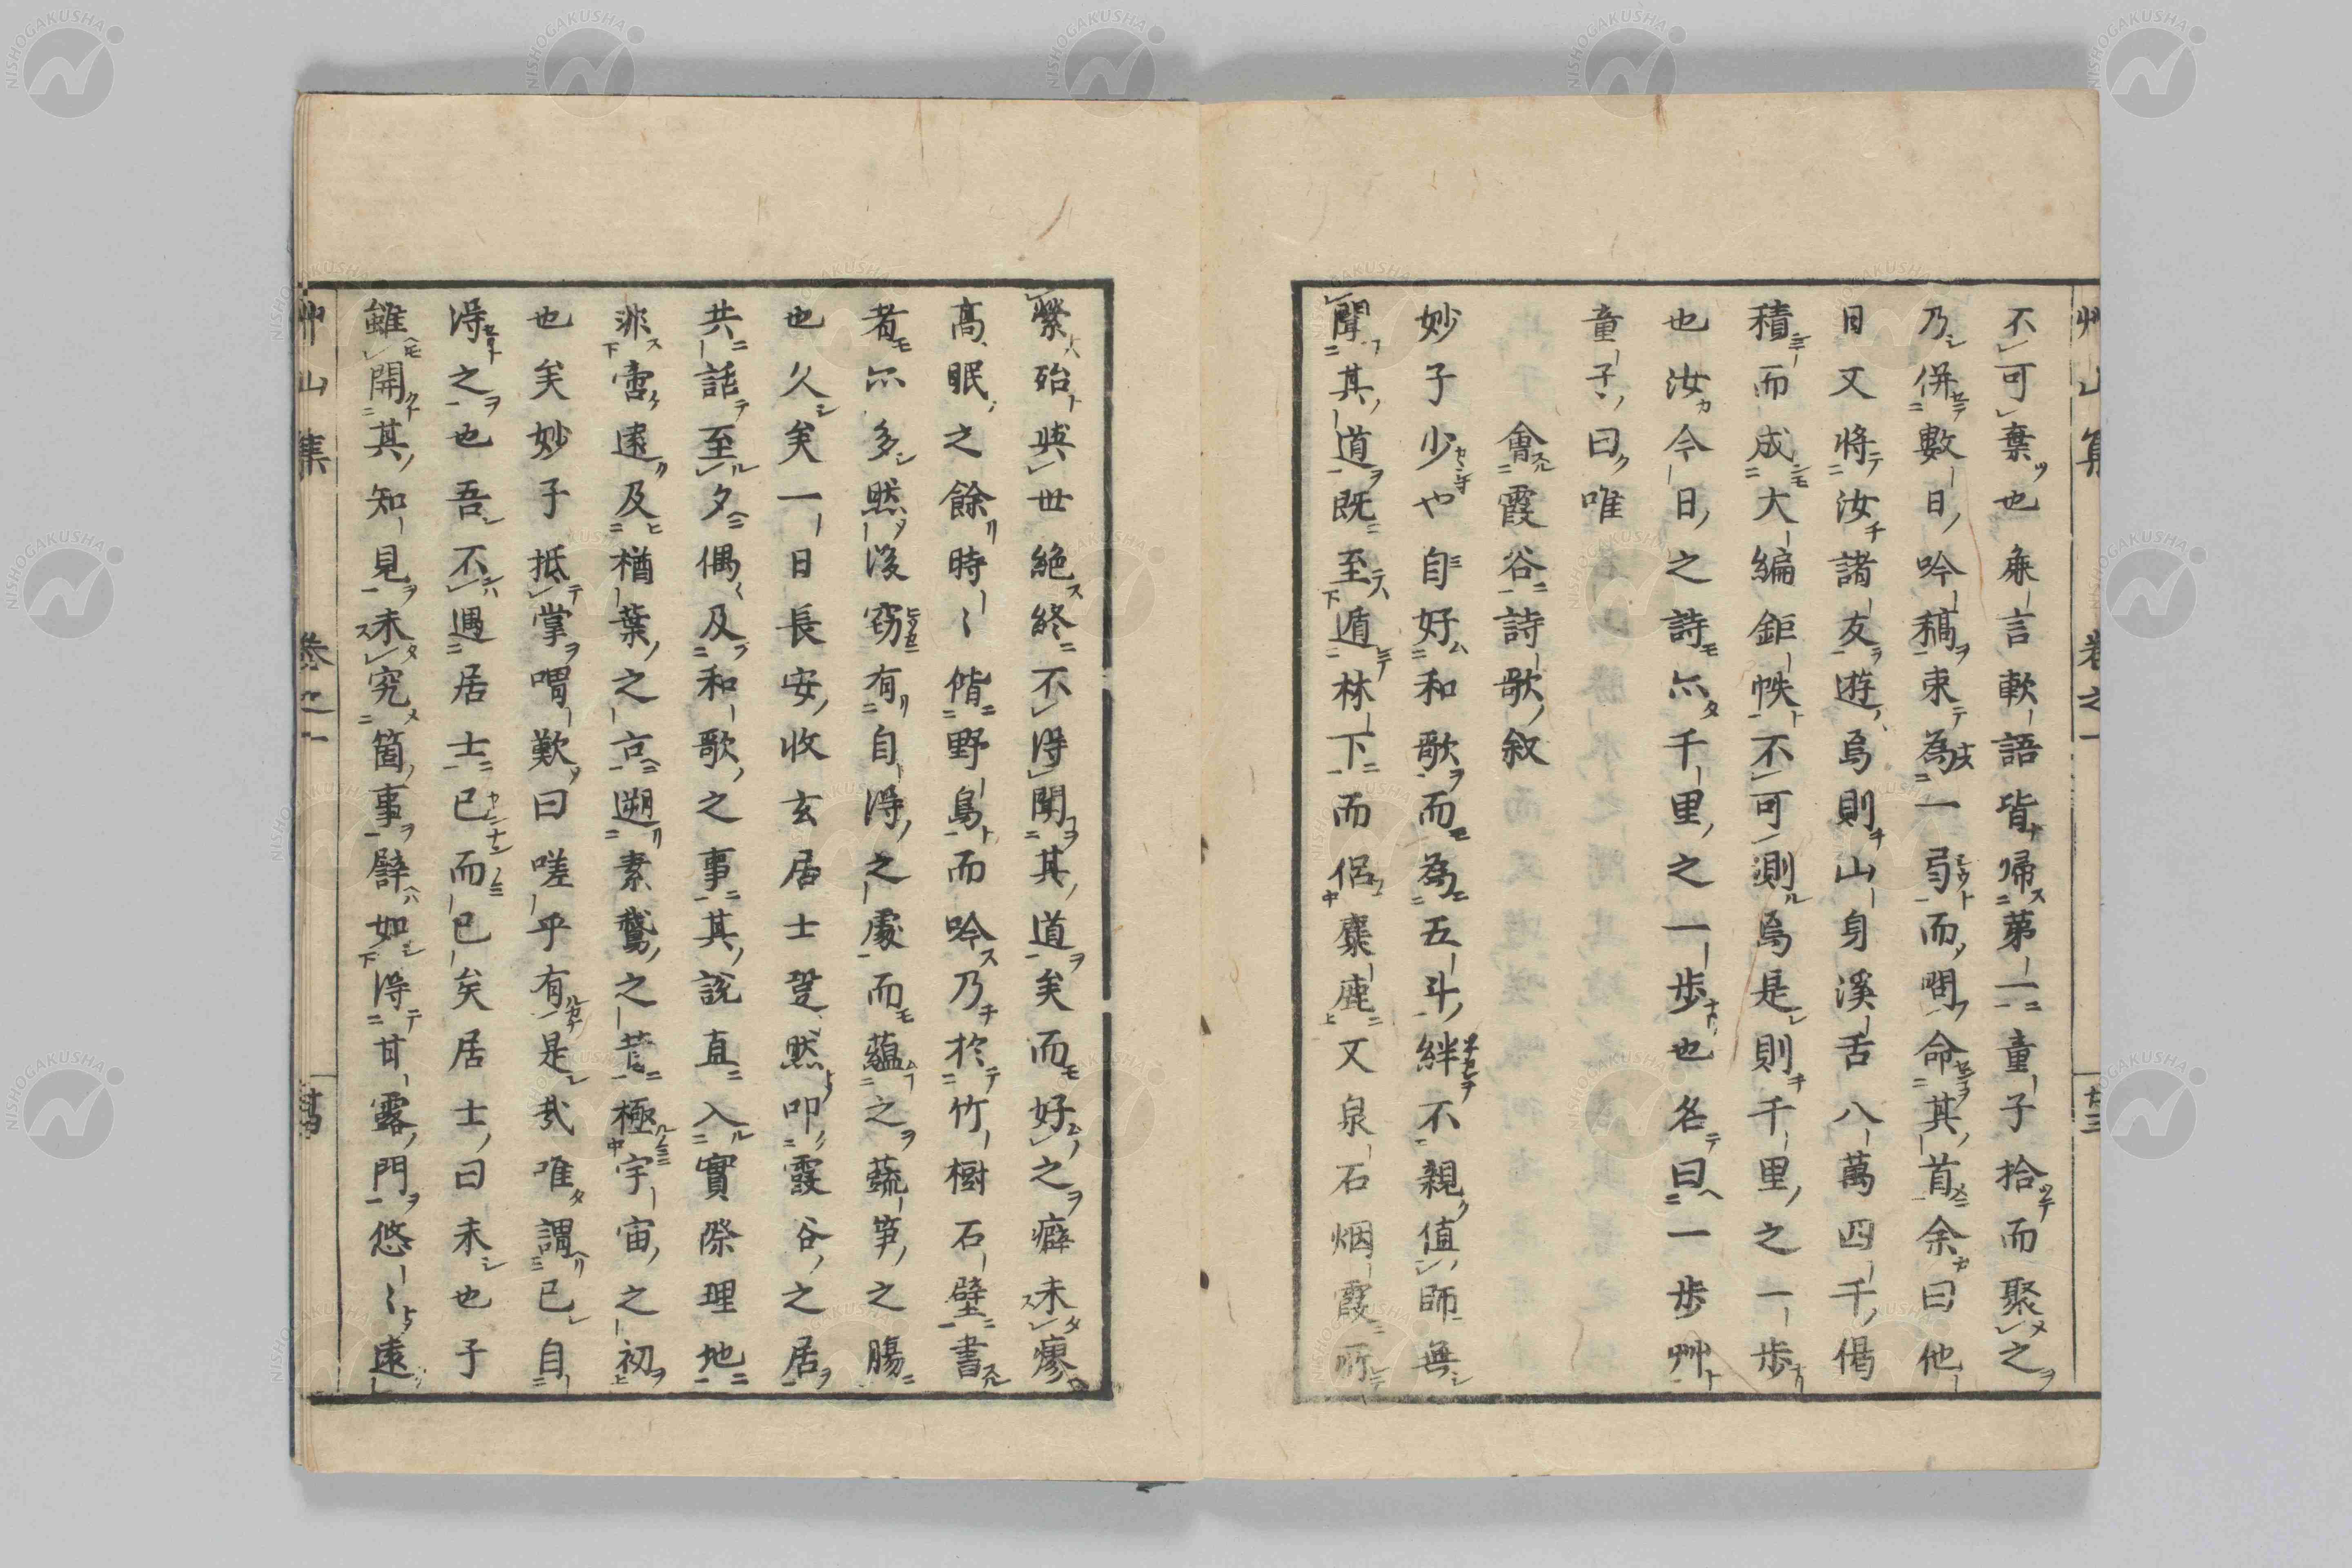 艸山集 卷之一 廿三
不可棄也無言軟語皆歸第一童子拾而聚之
乃併數日吟稿束為一弓而問命其首余曰他
日又將汝諸友遊焉則山身溪舌八萬四千偈
積而成大編鉅帙不可測焉是則千里之一步
也汝今日之詩亦千里之一步也名曰一步艸
童子曰唯
會霞谷詩歌敘
妙子少也自好和歌而為五斗絆不親值師無
聞其道既至遁林下而侶麋鹿又泉石烟霞所
縈殆與世絕終不得聞其道矣而好之癖未瘳
高眠之餘時〻偕野島而吟乃於竹樹石壁書
者亦多然後竊有自得之處而蘊之蔬笋之腸
也久矣一日長安收玄居士跫然叩霞谷之居
共話至夕偶及和歌之事其說直入實際理地
非啻遠及楢葉之京遡素鵞之昔極宇宙之初
也矣妙子抵掌喟歎曰嗟乎有是哉唯謂已自
得之也吾不遇居士已而已矣居士曰未也子
雖開其知見未究箇事譬如得甘露門悠〻遠
艸山集 卷之一
NISHOGAKUSHA